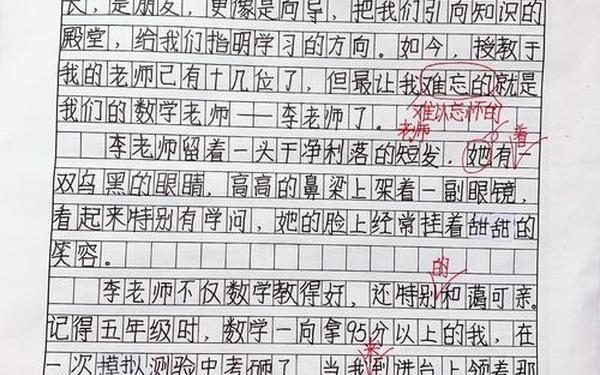 长，是朋友，更像是向导，把我们引向知识的
殿堂，给我们指明学习的方向。如今，授教于
我的老师已有十几位了，但最让我难忘的就是
难以忘怀的
我们的数学老师——李老师了。
老师
着
李老师留着一头干净利落的短发，她有一
双乌黑的眼睛，高高的鼻梁上架着一副眼镜，
看起来特别有学问，她的脸上经常挂着甜甜的
笑容。
的
李老师不仅数学教得好，还特别和蔼可亲。
记得五年级时，数学一向拿95分以上的我，在
来
一次模拟测验中考砸了，当我到讲台上领着那